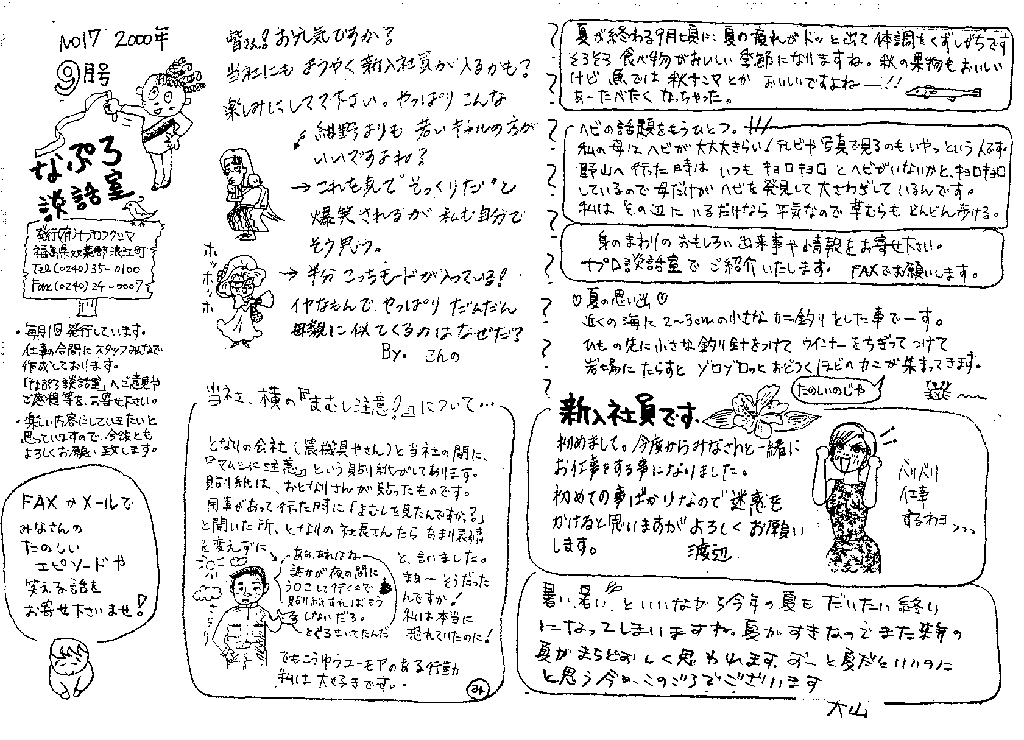 No17 2000年
9月号
なぷろ
談話室
発行(有)ナプロフクシマ
福島県双葉郡浪江町
Tel (0240) 35-0100
Fax (0240) 24-0007
・毎月1回発行しています。
仕事の合間にスタッフみんなで
作成しております。
「なぷろ談話室」へご意見や
ご感想等を、お寄せ下さい。
・楽しい内容にしていきたいと
思っていますので、今後とも
よろしくお願い致します。
FAXかメールで
みなさんの
たのしい
エピソードや
笑える話を
お寄せ下さいませ!
皆さん?お元気ですか?
当社にもようやく新入社員が入るかも?
楽しみにしてて下さい。やっぱりこんな
紺野よりも若いギャルの方が
いいですよね?
→これを見て"そっくりだ"と
爆笑されるが私も自分で
そう思う。
ホッホッホ
→半分こっちモードが入っている!
イヤなもんで、やっぱりだんだん
母親に似てくるのはなぜだ?
By. こんの
当社、横の『まむし注意?』について…
となりの会社(農機具やさん)と当社の間に、
『マムシに注意』という貼り紙がしてあります。
貼り紙は、おとなりさんが貼ったものです。
用事があって行った時に「まむしを見たんですか?」
と聞いた所、となりの社長さんたらあまり表情
を変えずに
あぁ、あれはね
誰かが夜の間に
う○こして行くので
貼り紙すればもう
と、言いました。
まあ〜そうだった
んですか!
私は本当に
恐れていたのに!
でもこうゆうユーモアのある行動
私は大好きです。
み
夏が終わる9月頃に、夏の疲れがドッと出て体調をくずしがちです
そろそろ食べ物がおいしい季節になりますね。秋の果物もおいしい
けど魚では秋サンマとかおいしいですよねー!!
あーたべたくなっちゃった。
ヘビの話題をもうひとつ。
私の母はヘビが大大大きらい!テレビや写真で見るのもいやっという人です
野山へ行った時はいつもキョロキョロとヘビがいないかと、キョロキョロ
しているので母だけがヘビを発見して大さわぎしているんです。
私はその辺にいるだけなら平気なので草むらもどんどん歩ける。
身のまわりのおもしろい出来事や情報をお寄せ下さい。
ナプロ談話室でご紹介いたします。 FAXでお願いします。
♡夏の思い出♡
近くの海に2〜3cmの小さなカニ釣りをした事でーす。
ひもの先に小さな釣り針をつけてウインナーをちぎってつけて
岩場にたらすとゾロゾロっとおどろくくらいのカニが集まってきます。
たのしいのじゃ
新入社員です.
初めまして。今度からみなさんと一緒に
お仕事をする事になりました。
初めての事ばかりなので迷惑を
かけると思いますがよろしくお願い
します。 渡辺
バリバリ
仕事
するわヨ
暑い、暑い、といいながら今年の夏もだいたい終り
になってしまいますね。夏がすきなのでまた来年の
夏がまちどおしく思われます。ずーと夏だといいのに
と思う今日このごろでございます
大山